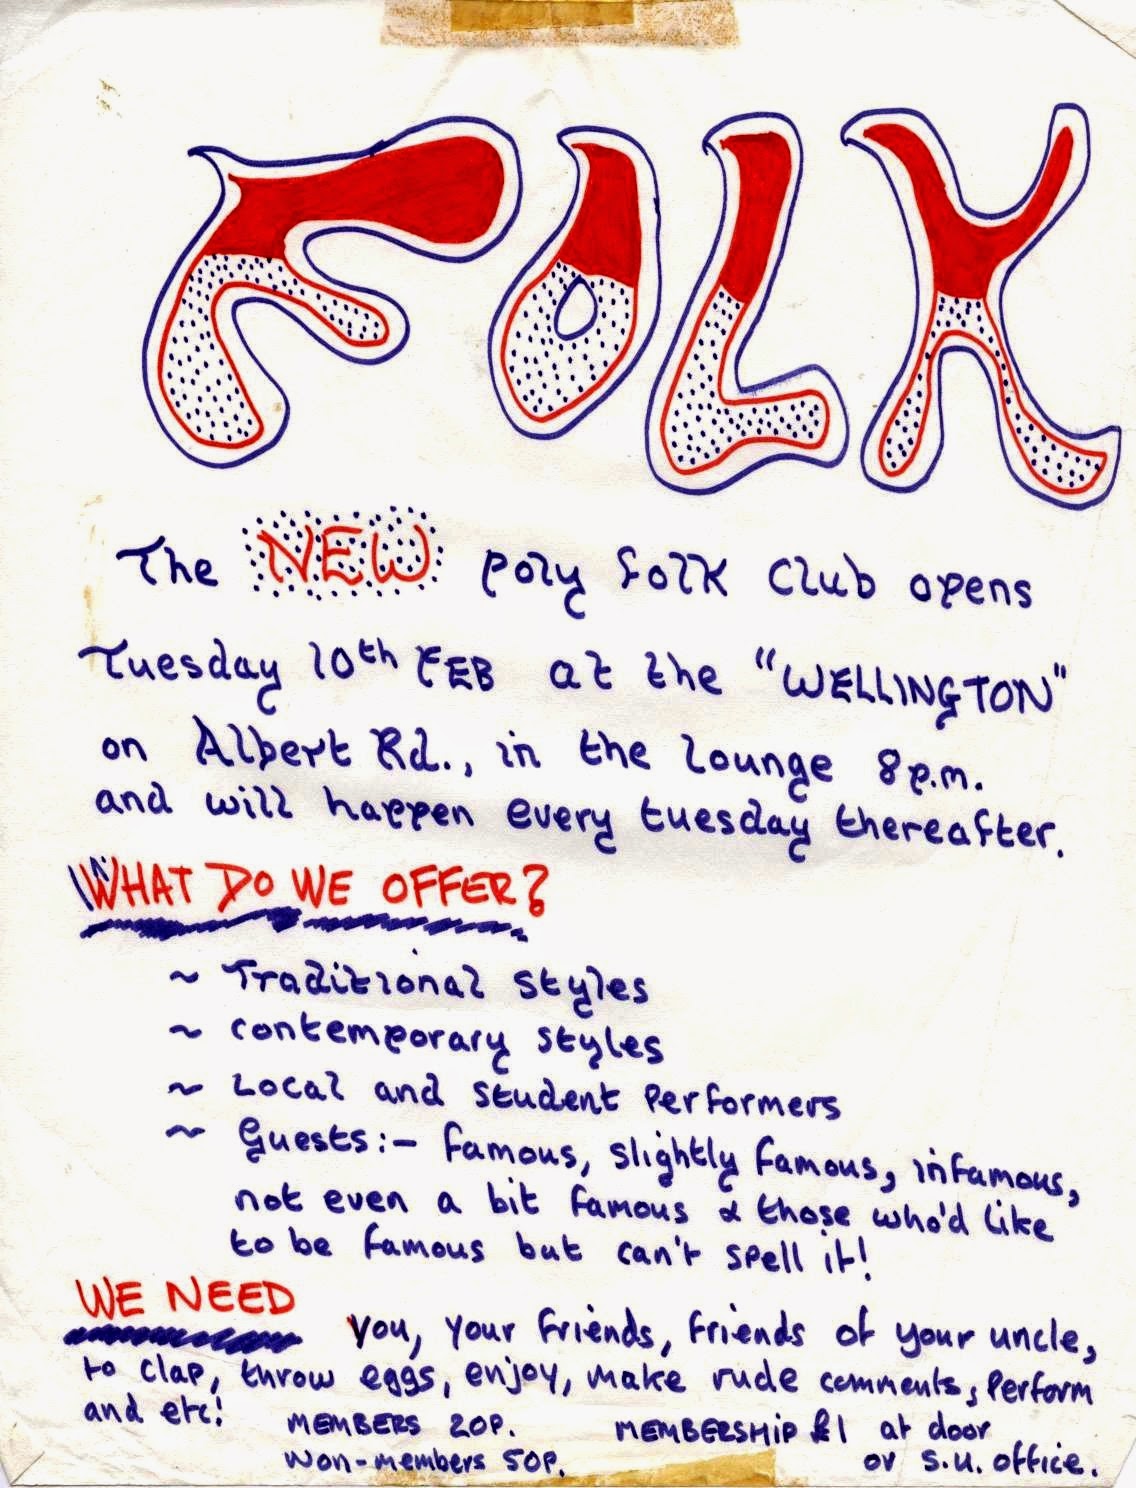 FOLK
The NEW poly folk club opens
Tuesday 10th FEB at the "WELLINGTON"
on Albert Rd., in the lounge 8p.m.
and will happen every tuesday thereafter.
WHAT DO WE OFFER?
~ Traditional styles
~ contemporary styles
~ Local and student Performers
~ Guests:- famous, slightly famous, infamous,
not even a bit famous & those who'd like
to be famous but can't spell it!
WE NEED
You, your friends, friends of your uncle,
to clap, throw eggs, enjoy, make rude comments, Perform
and etc!
MEMBERS 20P. MEMBERSHIP £1 at door
Non-members 50P. or S.U. office.